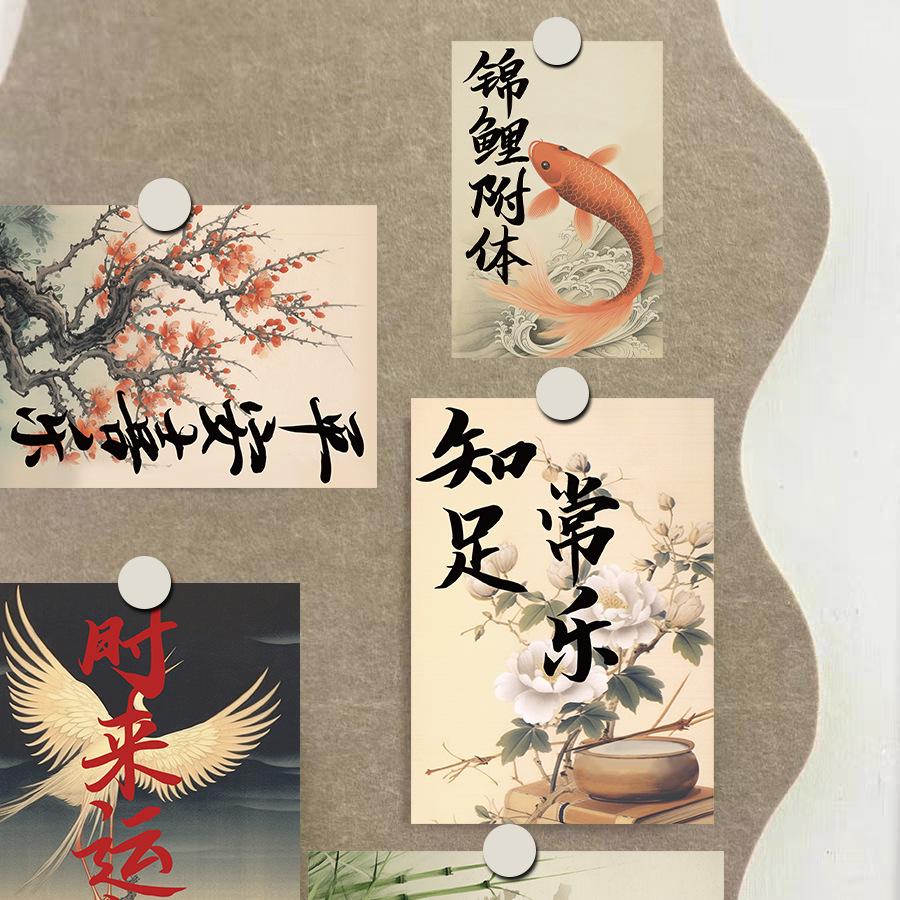 锦鲤附体
平安喜乐
知足
常乐
时来运